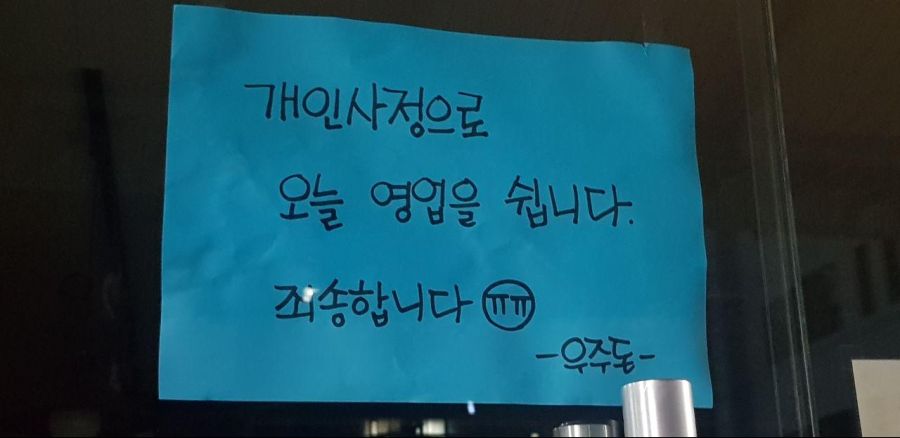 개인사정으로
오늘 영업을 쉽니다.
죄송합니다 ㅠㅠ
-우주돈-